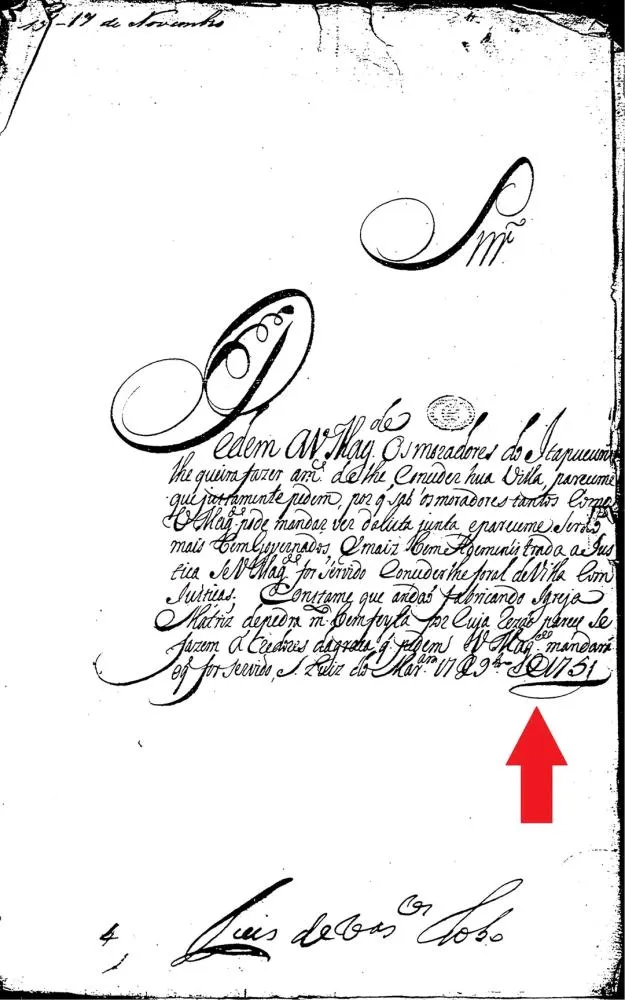 17 de Novembro
Snr
Pedem A V. Mag.de Os moradores do Itapucuru
lhe queira fazer a m.ce de lhe Conceder hua Villa, pareceme
que justamente pedem, por q̃ saõ os moradores tantos Como
V. Mag.de pode mandar ver da lista junta e pareceme seraõ
mais bem Governados, E mais bem Administrada a Jus
tica Se V. Mag.de for servido Concederlhe foral de Villa Com
Justiças. Constame que andaõ fabricando Igreja
Matriz de pedra m.to bem feyta por Cuja rezaõ parece se
fazem a Credores da graça q̃ pedem V. Mag.de mandará
o q̃ for servido, S. Luiz do Mar.am 17 D 9.bro D 1751
4
Luis de Vas.cos Lobo